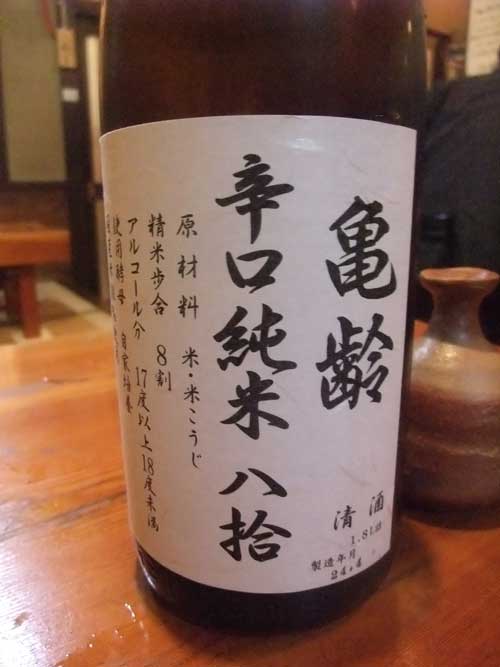 亀齢
清酒
1.8L詰
製造年月
24.4
辛口純米 八拾
原材料 米・米こうじ
精米歩合 8割
アルコール分 17度以上18度未満
使用酵母